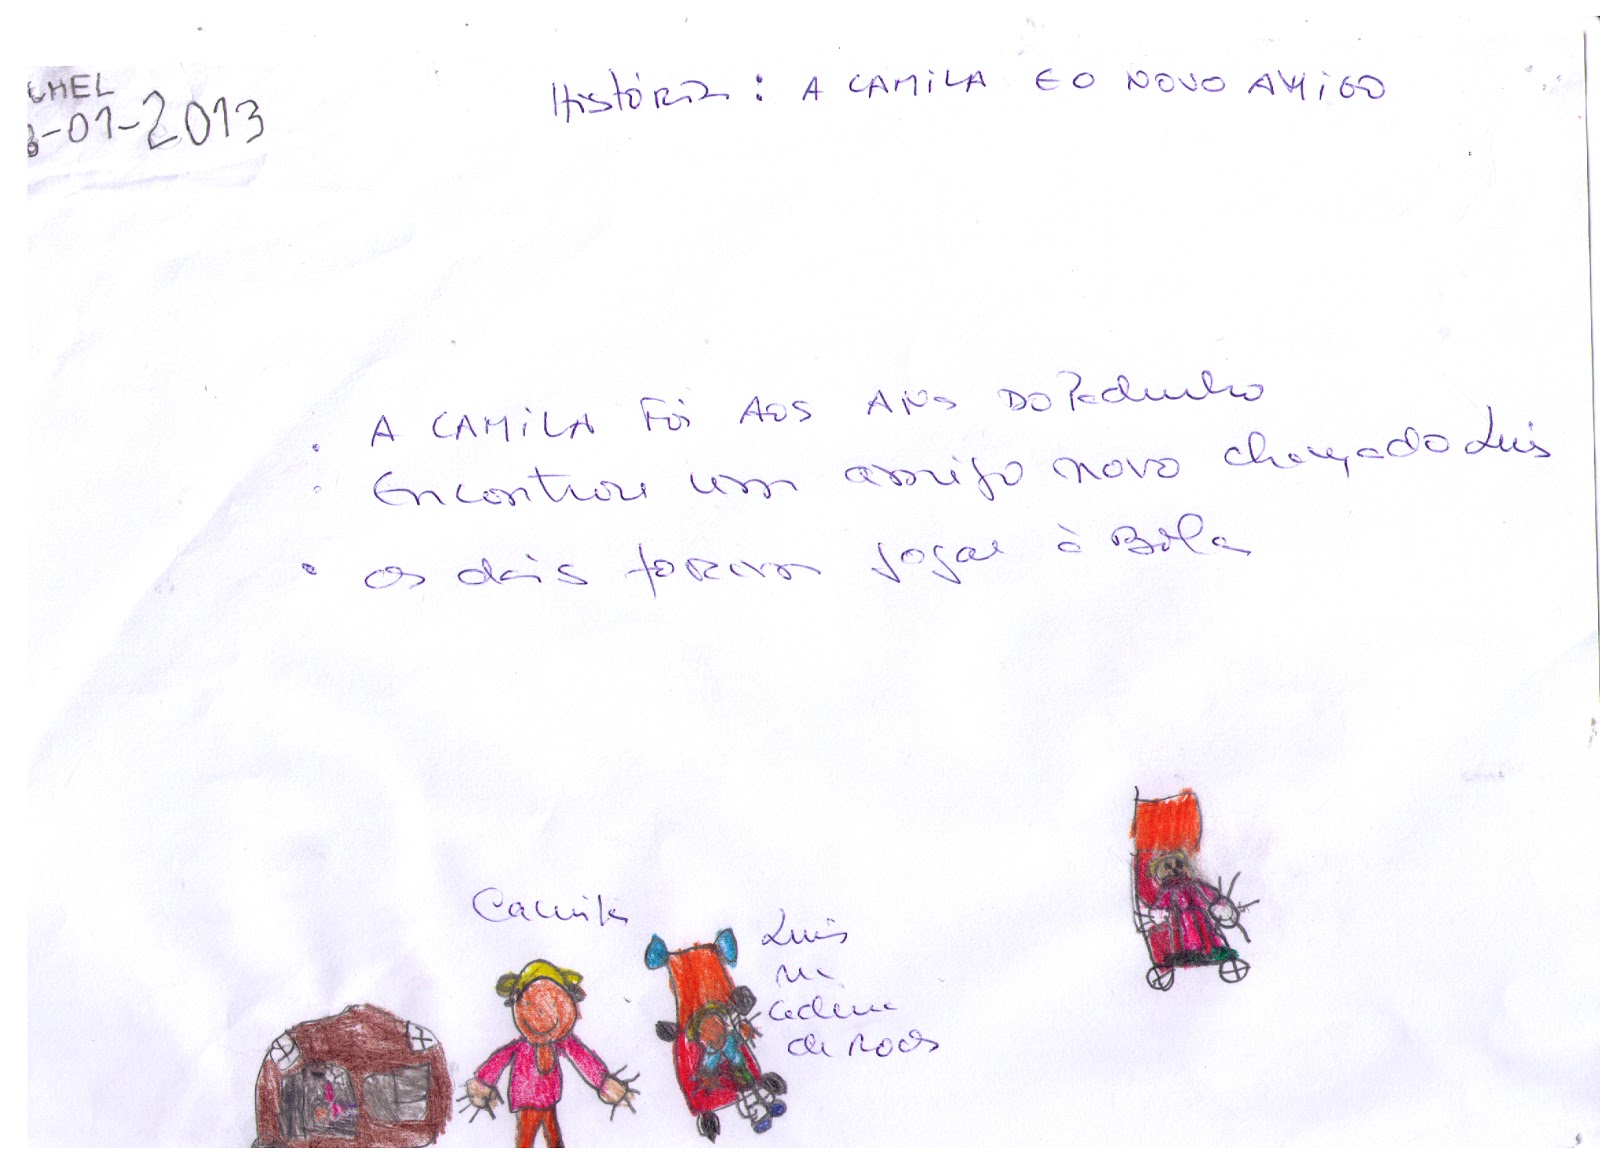 CHEL
8-01-2013
História: A CAMILA E O NOVO AMIGO
. A CAMILA FOI AOS ANOS DO Pedrinho
. Encontrou um amigo novo chamado Luis
. os dois foram jogar à Bola
Camila
Luis
na
cadeira
de Rodas